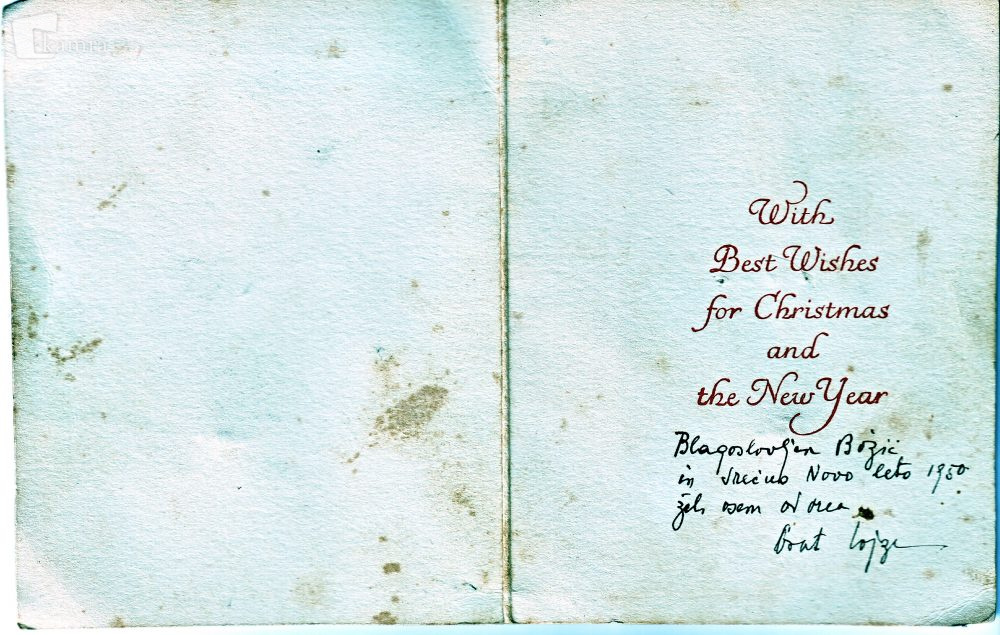 With
Best Wishes
for Christmas
and
the New Year
Blagoslovljen Božič
in srečno Novo leto 1950
želi vsem od srca
brat Lojze